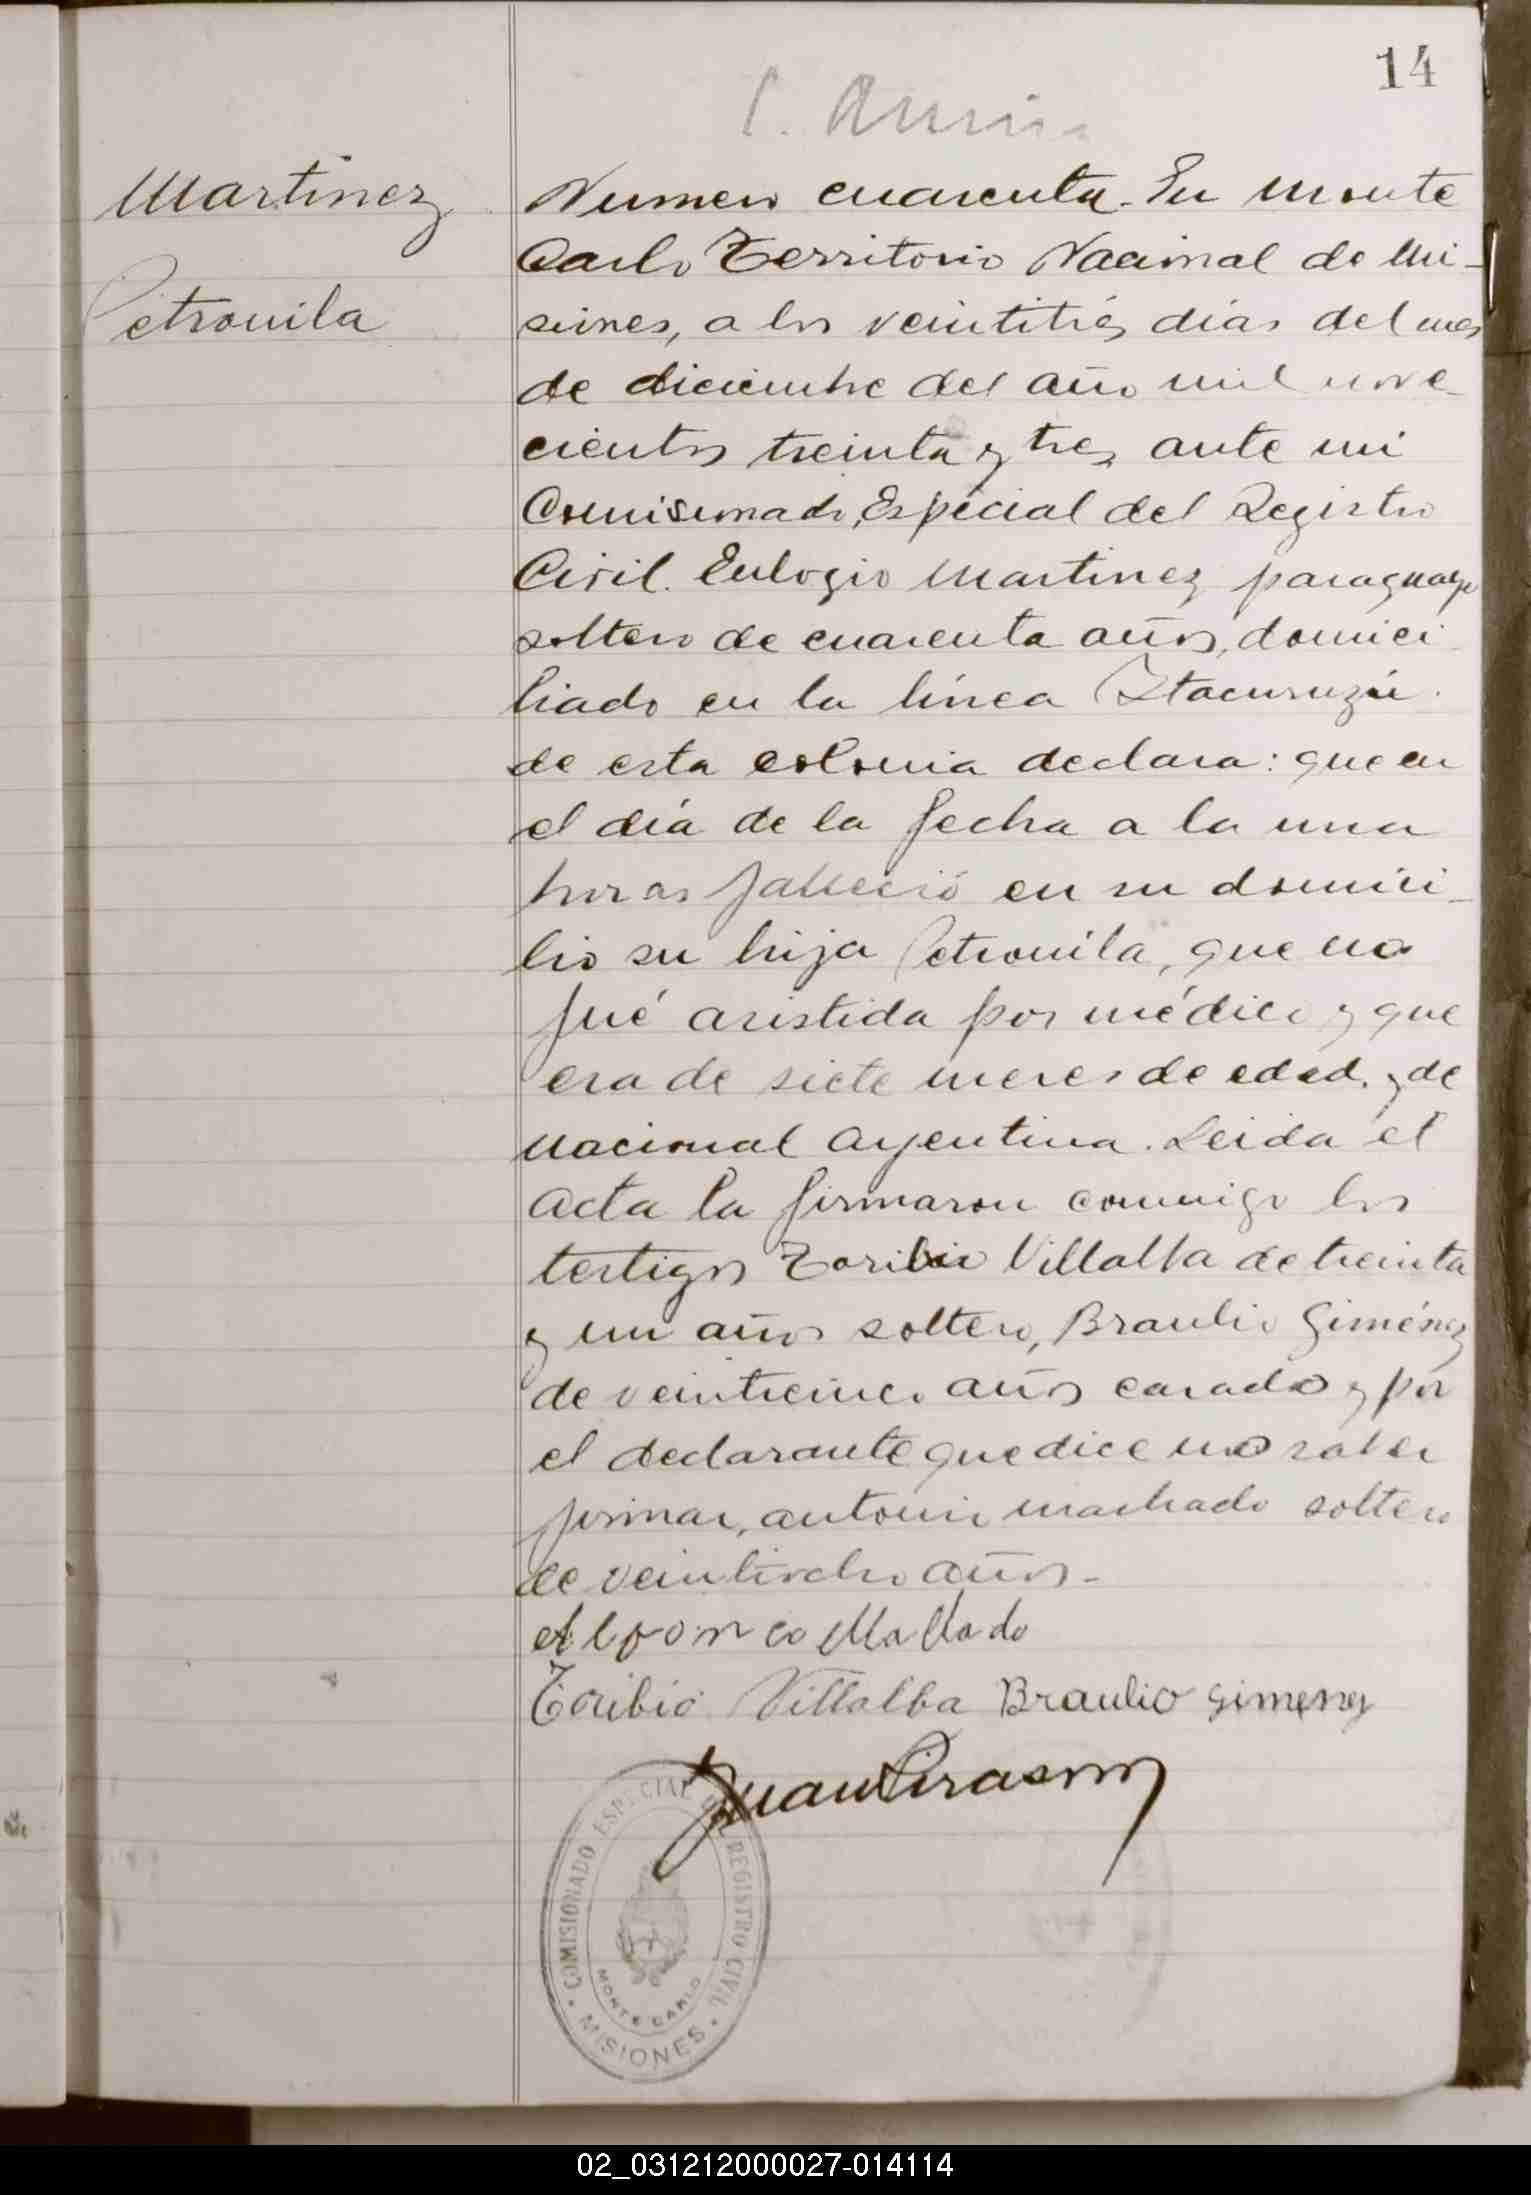 14
Martinez
Petronila
Numero cuarenta. En Monte
Carlo Territorio Nacional de Mi-
siones, a los veintitrés días del mes
de diciembre del año mil nove-
cientos treinta y tres, ante mi
Comisionado, Especial del Registro
Civil. Eulogio Martinez, paraguayo
soltero de cuarenta años, domici
liado en la línea Itacuruzú
de esta colonia declara: que en
el día de la fecha a la una
horas falleció en su domici-
lio su hija Petronila, que no
fué asistida por médico y que
era de siete meses de edad, y de
nacional Argentina. Leida el
acta la firmaron conmigo los
testigos Toribio Villalba de treinta
y un años soltero, Braulio Giménez
de veinticinco años casado y por
el declarante que dice no saber
firmar, Antonio Machado soltero
de veintiocho años-
Toribio Villalba Braulio Gimenez
COMISIONADO ESPECIAL DEL REGISTRO CIVIL
MONTE CARLO
MISIONES
02_031212000027-014114